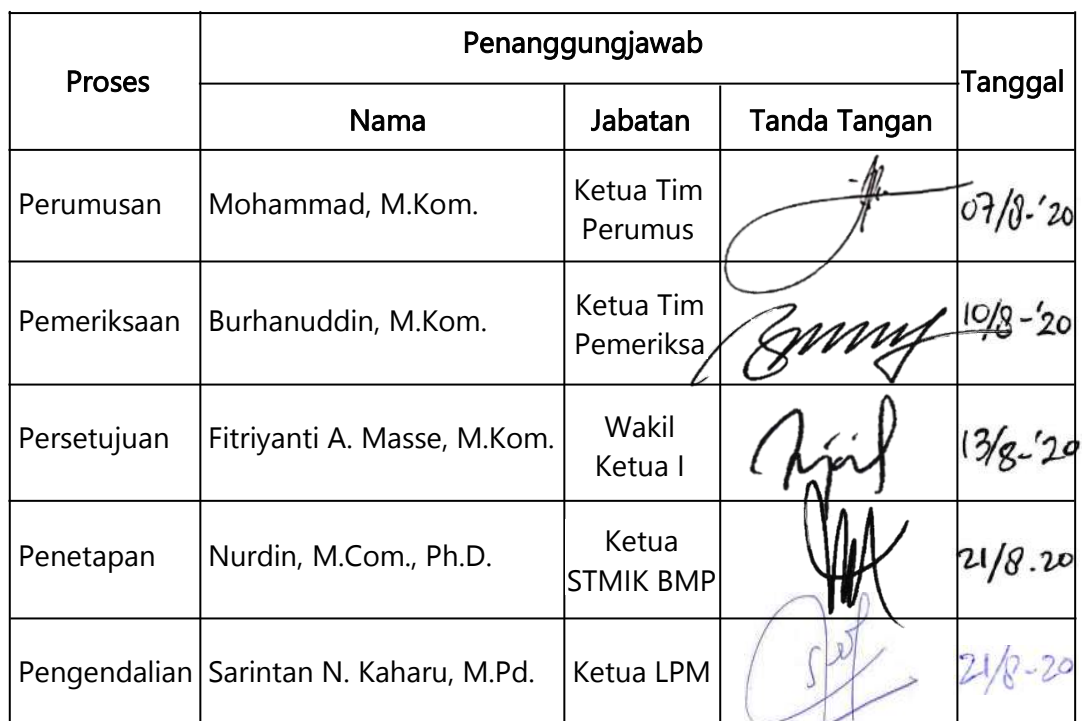 Proses
Penanggungjawab
Tanggal
Nama
Jabatan
Tanda Tangan
Perumusan
Mohammad, M.Kom.
Ketua Tim
Perumus
07/8-'20
Pemeriksaan
Burhanuddin, M.Kom.
Ketua Tim
Pemeriksa
10/8-'20
Persetujuan
Fitriyanti A. Masse, M.Kom.
Wakil
Ketua I
13/8-'20
Penetapan
Nurdin, M.Com., Ph.D.
Ketua
STMIK BMP
21/8.20
Pengendalian
Sarintan N. Kaharu, M.Pd.
Ketua LPM
21/8-20